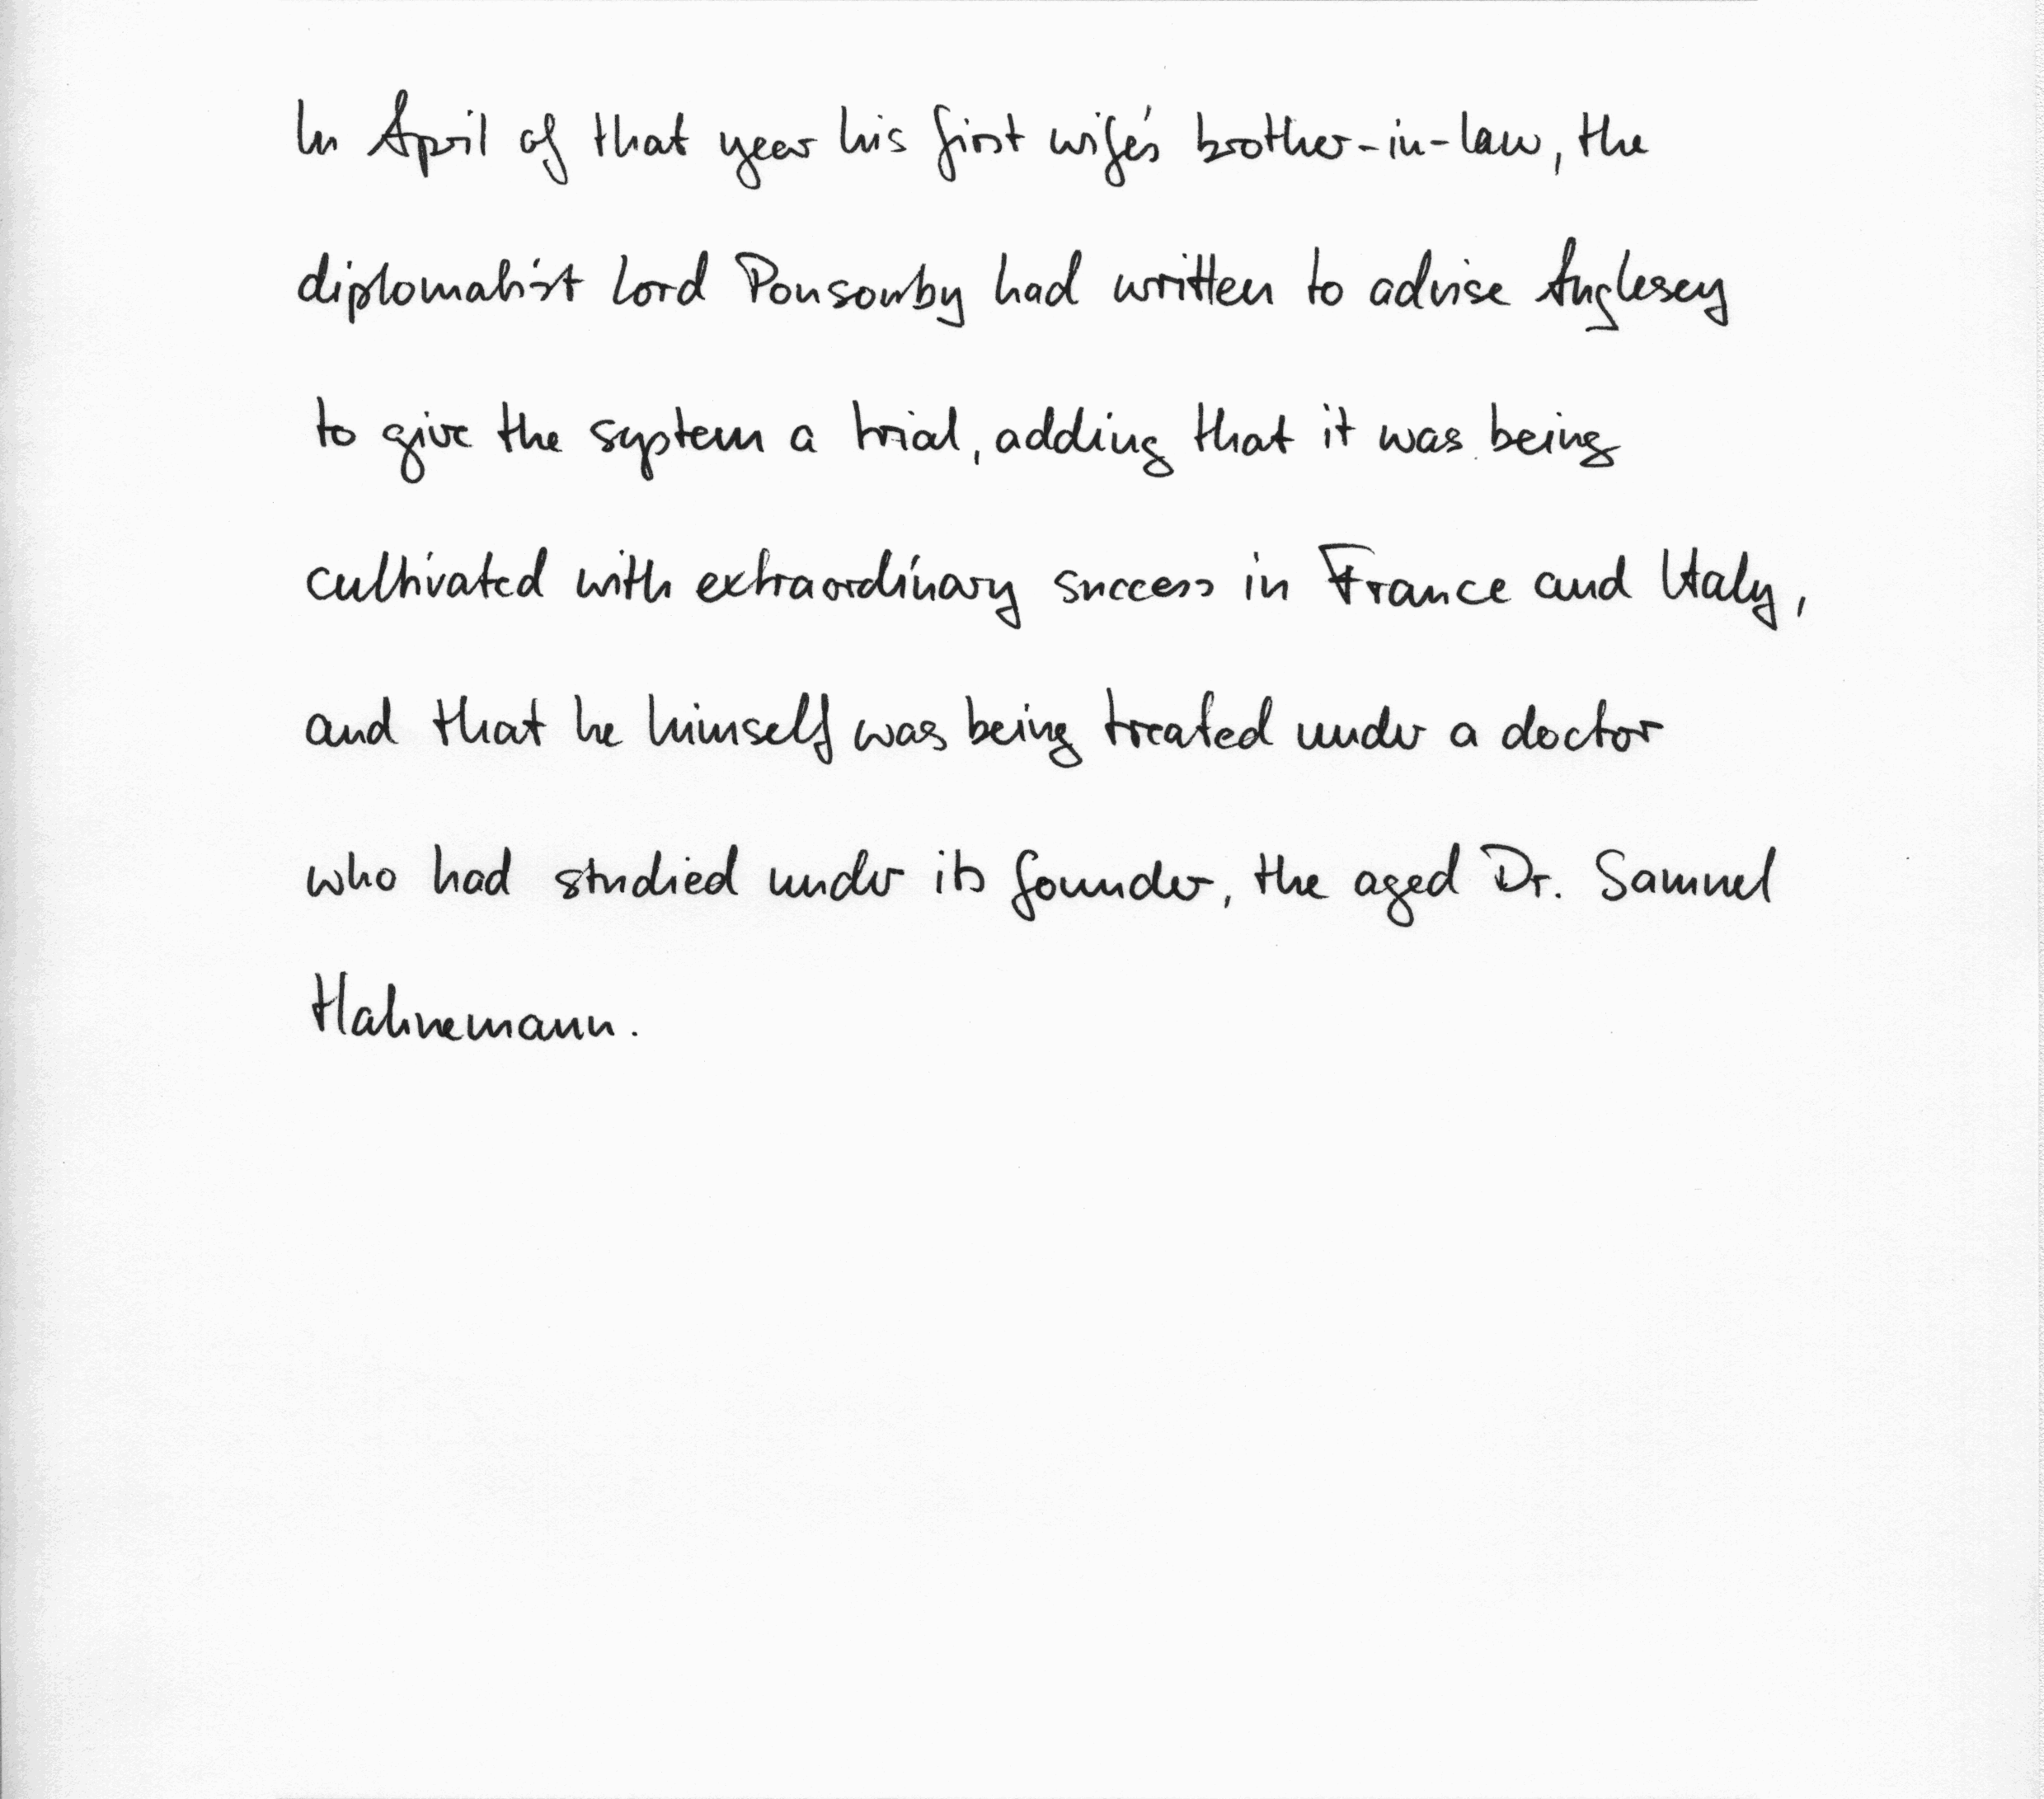 In April of that year his first wife's brother-in-law, the
diplomatist Lord Ponsonby had written to advise Anglesey
to give the system a trial, adding that it was being
cultivated with extraordinary success in France and Italy,
and that he himself was being treated under a doctor
who had studied under its founder, the aged Dr. Samuel
Hahnemann.